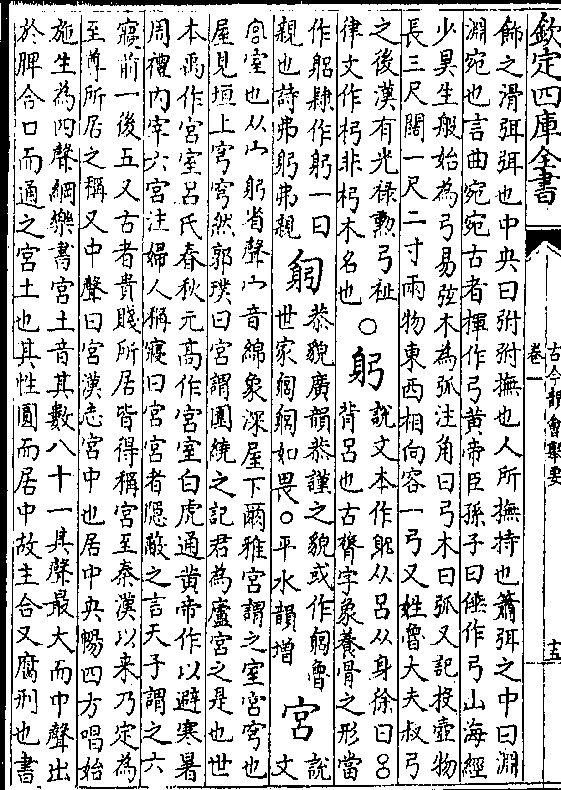 欽定四庫全書
古今韻會舉要
卷一
十五
飾之滑弭弭也中央曰弣弣撫也人所撫持也簫弭之中曰淵
淵宛也言曲宛宛古者揮作弓黃帝臣孫子曰倕作弓山海經
少昊生般始為弓易弦木為弧注角曰弓木曰弧又記投壺物
長三尺闊一尺二寸兩物東西相向容一弓又姓魯大夫叔弓
之後漢有光祿勲弓祉○躬説文本作躳从呂从身徐曰呂
背呂也古膂字象養骨之形當
律文作杇非杇木名也
作躳隸作躬一曰
親也詩弗躬弗親 匑恭貌廣韻恭謹之貌或作匔魯
世家匔匔如畏○平水韻增 宮説
文
宫室也从宀躬省聲宀音綿象深屋下爾雅宫謂之室宫穹也
屋見垣上穹穹然郭璞曰宫謂圍繞之記君為廬宫之是也世
本禹作宫室呂氏春秋元高作宫室白虎通黄帝作以避寒暑
周禮内宰六宫注婦人稱寢曰宫宫者隠蔽之言天子謂之六
寢前一後五又古者貴賤所居皆得稱宫至秦漢以来乃定為
至尊所居之稱又中聲曰宫漢志宫中也居中央暢四方唱始
施生為四聲綱樂書宫土音其數八十一其聲最大而中聲出
於脾合口而通之宫土也其性圓而居中故主合又腐刑也書